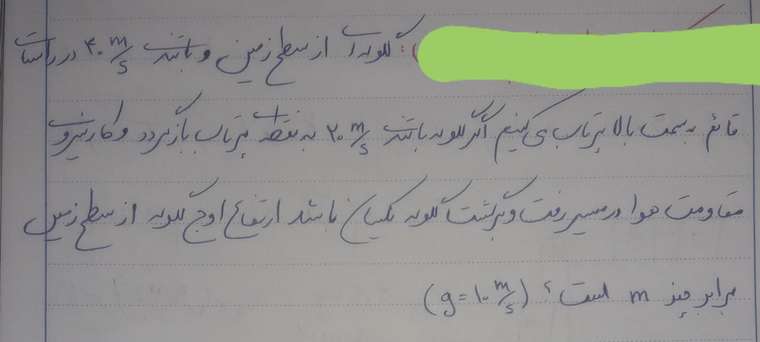 گلوله‌ای از سطح زمین و با تندی ۴۰ m/s در راستای
قائم به سمت بالا پرتاب می‌کنیم اگر گلوله با تندی ۲۰ m/s به نقطه پرتاب بازگردد و کار نیروی
مقاومت هوا در مسیر رفت و برگشت گلوله یکسان باشد ارتفاع اوج گلوله از سطح زمین
برابر چند m است؟ (g = ۱۰ m/s)